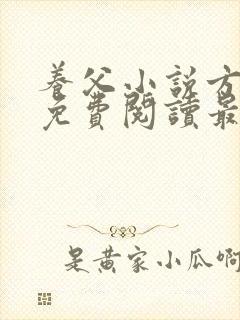 養父小說方
免費閱讀最
是黄家小瓜啊